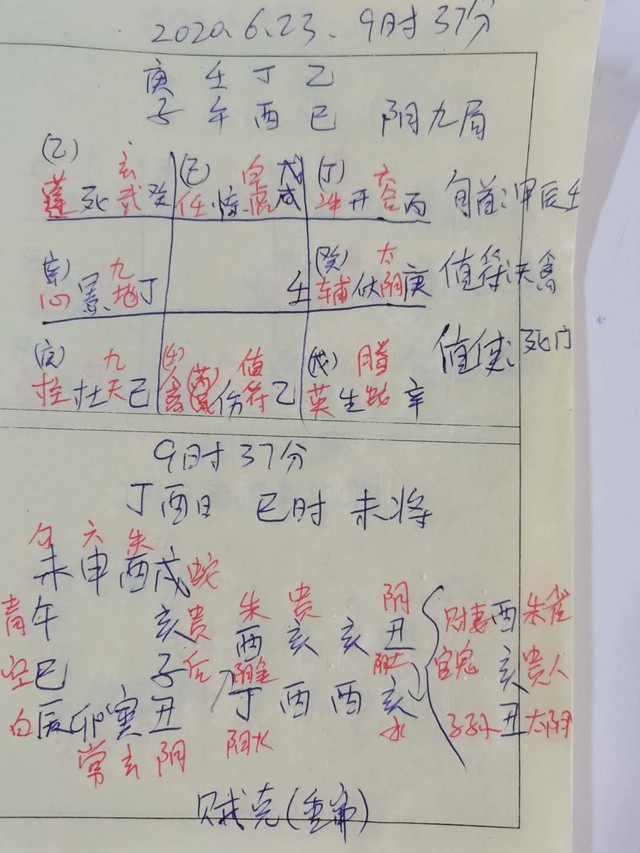 2020.6.23. 9时37分
庚 壬 丁 乙
子 午 酉 巳 阴九局
(乙) 玄 (己) 白 戊 (丁) 六
蓬 死 武 癸 任 惊 虎 戌 冲 开 合 丙 旬首:甲辰壬
九 (癸) 太
心 景 地 丁 壬 辅 休 阴 庚 值符:天禽
九 值 (戊) 腾
柱 杜 天 己 禽 伤 符 乙 英 生 蛇 辛 值使:死门
9时37分
丁酉日 巳时 未将
勾 六 朱
未 申 酉 戌 蛇
青 午 亥 贵 朱 贵 阴
酉 亥 亥 丑 财妻 酉 朱雀
空 巳 子 后 官鬼 亥 贵人
白 辰 卯 寅 丑 丁 酉 酉 亥 子孙 丑 太阴
常 玄 阴 阴火 水
贼克(重审)